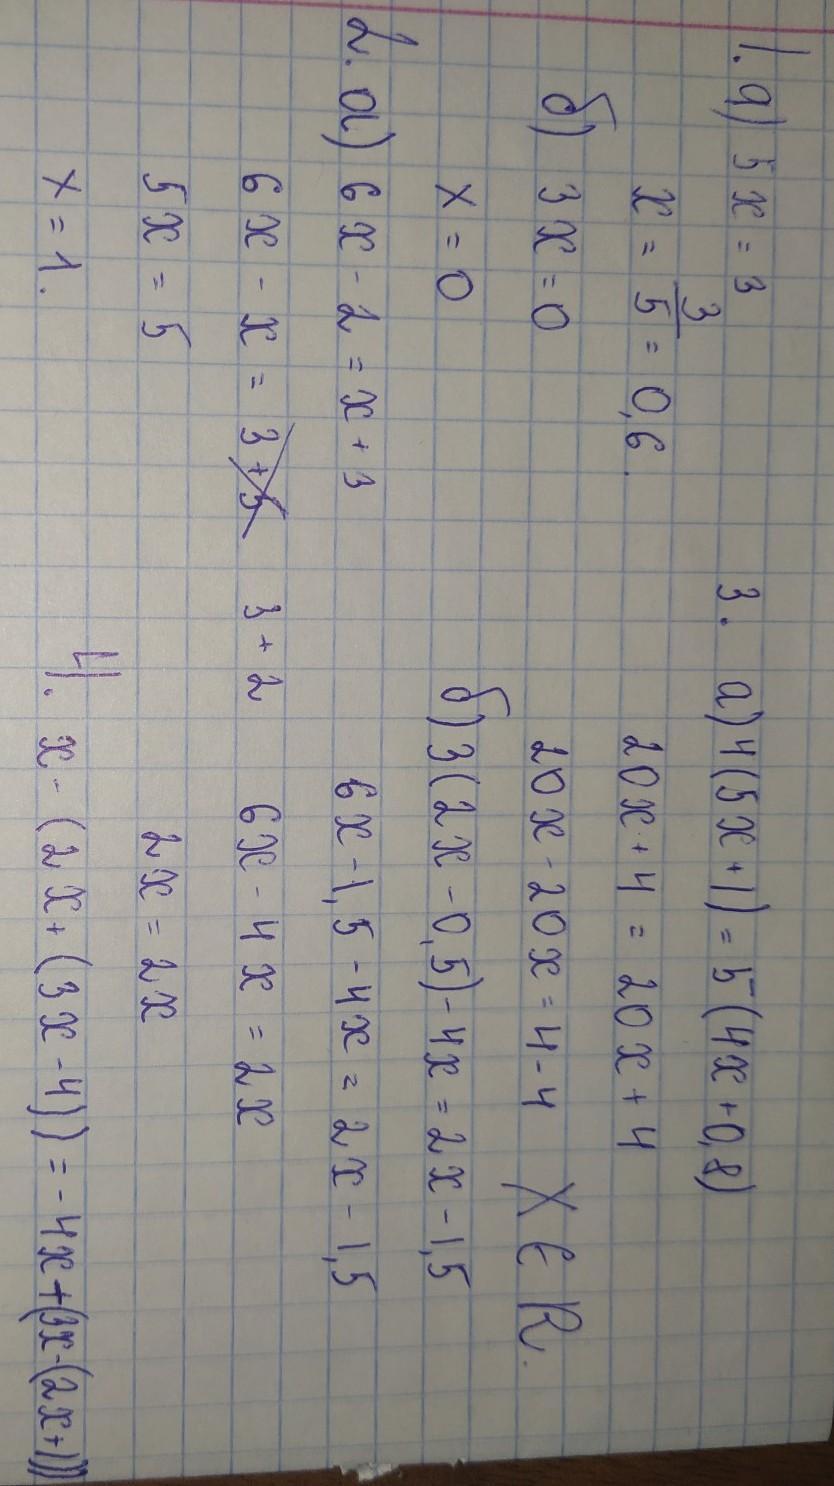 1. а) 5x = 3
x = 3/5 = 0,6.
б) 3x = 0
x = 0
2. а) 6x - 2 = x + 3
6x - x = 3 + 5 3 + 2
5x = 5
x = 1.
3. а) 4(5x + 1) = 5(4x + 0,8)
20x + 4 = 20x + 4
20x - 20x = 4 - 4 X ∈ R.
б) 3(2x - 0,5) - 4x = 2x - 1,5
6x - 1,5 - 4x = 2x - 1,5
6x - 4x = 2x
2x = 2x
4. x - (2x + (3x - 4)) = - 4x + (3x - (2x + 1)))